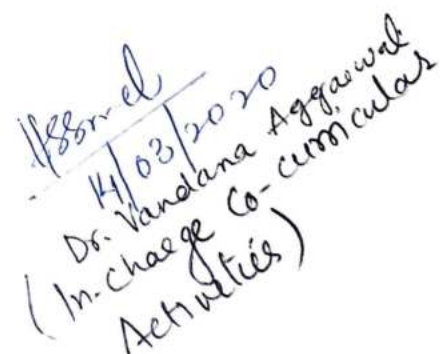 14/03/2020
Dr. Vandana Aggarwal
(In-charge Co-curricular
Activities)